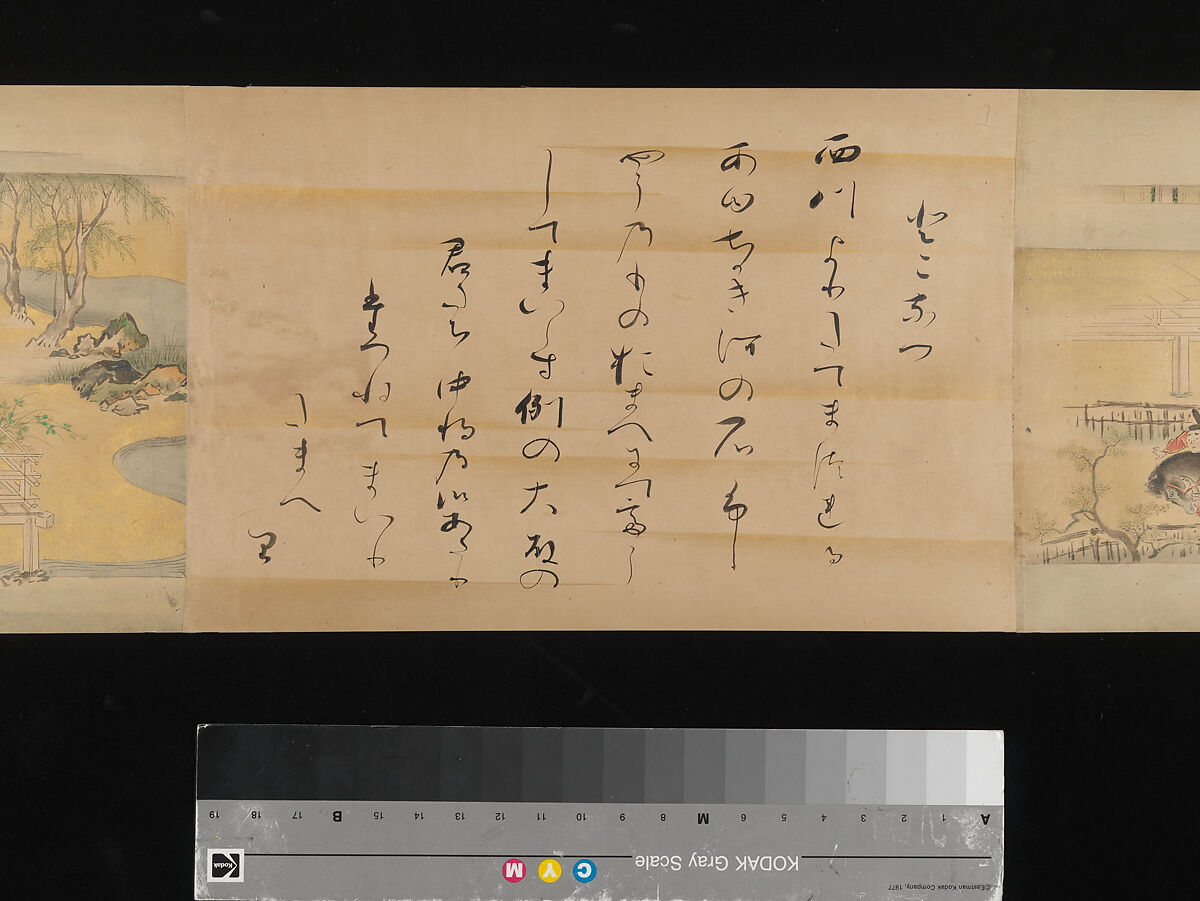 とこなつ
西川よりたてまつれる
あゆちかき河の石ふし
やうのものおまへにててう
してまいらす例の大殿の
君たち中将の御あたり
たつねてまいり
たまへ
り
A 1 2 3 4 5 6 M 8 9 10 11 12 13 14 15 B 17 18 19
KODAK Gray Scale
C Y M
Kodak
©Eastman Kodak Company, 1977